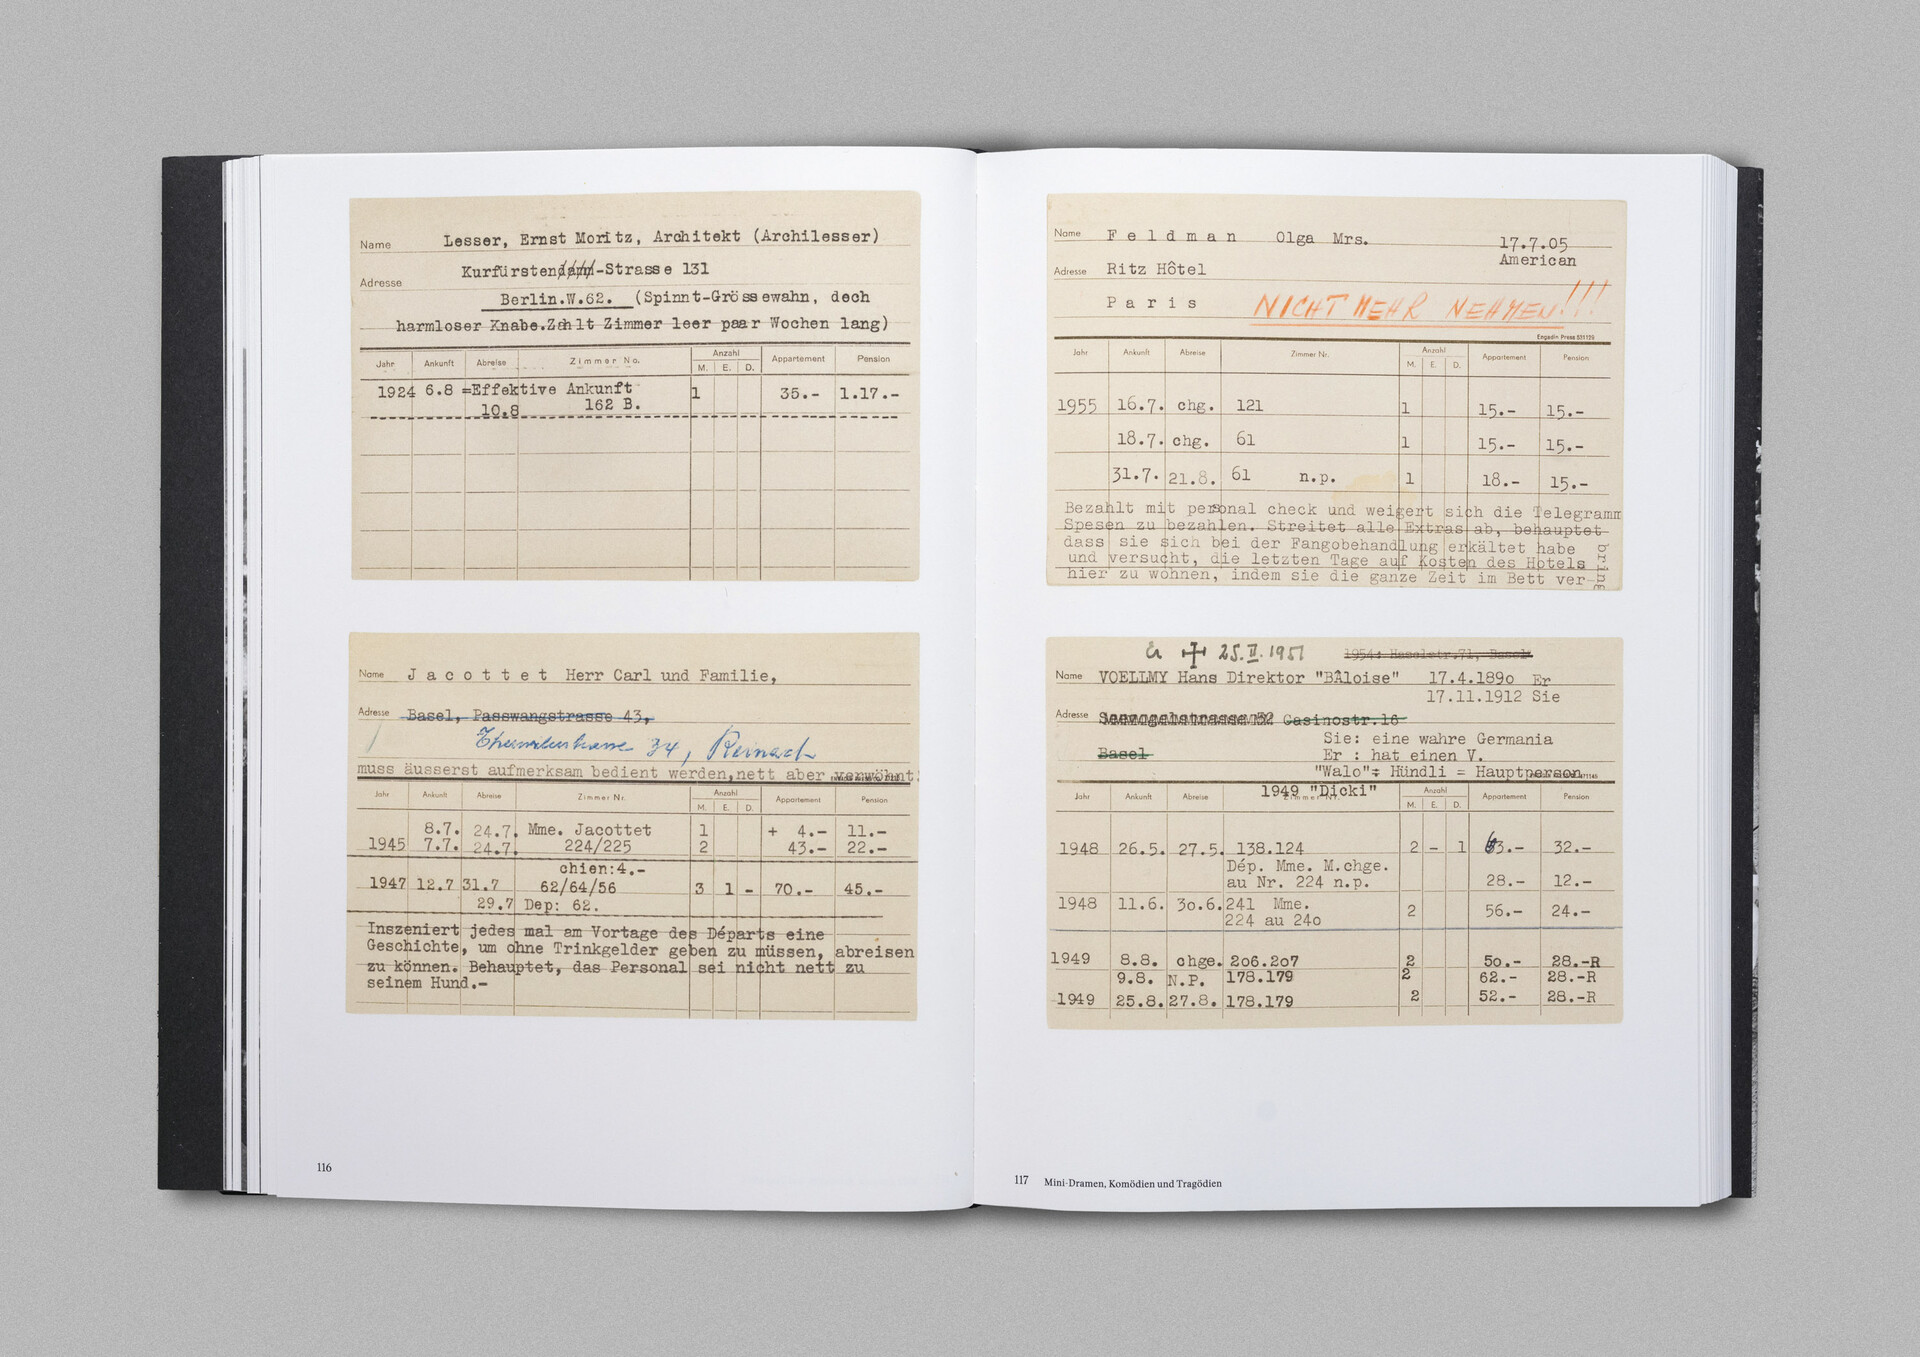 Name Lesser, Ernst Moritz, Architekt (Archilesser)
Adresse Kurfürstendamm-Strasse 131
Berlin.W.62. (Spinnt-Grössewahn, doch
harmloser Knabe.Zahlt Zimmer leer paar Wochen lang)
Jahr Ankunft Abreise Zimmer No. Anzahl Appartement Pension
M. E. D.
1924 6.8 =Effektive Ankunft 1 35.- 1.17.-
10.8 162 B.
Name Jacottet Herr Carl und Familie,
Adresse Basel, Passwangstrasse 43,
34, Reinach
muss äusserst aufmerksam bedient werden,nett aber verwöhnt.
Jahr Ankunft Abreise Zimmer Nr. Anzahl Appartement Pension
M. E. D.
8.7. 24.7. Mme. Jacottet 1 + 4.- 11.-
1945 7.7. 24.7. 224/225 2 43.- 22.-
chien:4.-
1947 12.7 31.7 62/64/56 3 1 - 70.- 45.-
29.7 Dep: 62.
Inszeniert jedes mal am Vortage des Départs eine
Geschichte, um ohne Trinkgelder geben zu müssen, abreisen
zu können. Behauptet, das Personal sei nicht nett zu
seinem Hund.-
116
Name Feldman Olga Mrs. 17.7.05
American
Adresse Ritz Hôtel
Paris NICHT MEHR NEHMEN!!!
Engadin Press 531129
Jahr Ankunft Abreise Zimmer Nr. Anzahl Appartement Pension
M. E. D.
1955 16.7. chg. 121 1 15.- 15.-
18.7. chg. 61 1 15.- 15.-
31.7. 21.8. 61 n.p. 1 18.- 15.-
Bezahlt mit personal check und weigert sich die Telegramm
Spesen zu bezahlen. Streitet alle Extras ab, behauptet
dass sie sich bei der Fangobehandlung erkältet habe
und versucht, die letzten Tage auf Kosten des Hotels
hier zu wohnen, indem sie die ganze Zeit im Bett ver-
bring
Er 25.II.1951 1954: Haselstr.71, Basel
Name VOELLMY Hans Direktor "BÂloise" 17.4.1890 Er
17.11.1912 Sie
Adresse 32 Gasinostr.16
Sie: eine wahre Germania
Basel Er : hat einen V.
"Walo"= Hündli = Hauptperson
1949 "Dicki"
Jahr Ankunft Abreise Zimmer Nr. Anzahl Appartement Pension
M. E. D.
1948 26.5. 27.5. 138.124 2 - 1 63.- 32.-
Dép. Mme. M.chge.
au Nr. 224 n.p. 28.- 12.-
1948 11.6. 30.6. 241 Mme. 2 56.- 24.-
224 au 240
1949 8.8. chge. 206.207 2 50.- 28.-R
9.8. N.P. 178.179 2 62.- 28.-R
1949 25.8. 27.8. 178.179 2 52.- 28.-R
117 Mini-Dramen, Komödien und Tragödien